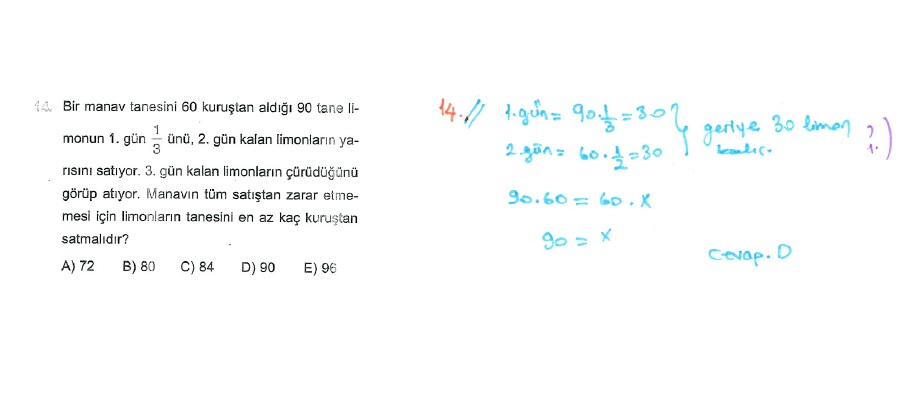 14. Bir manav tanesini 60 kuruştan aldığı 90 tane li-
monun 1. gün 1/3 ünü, 2. gün kalan limonların ya-
rısını satıyor. 3. gün kalan limonların çürüdüğünü
görüp atıyor. Manavın tüm satıştan zarar etme-
mesi için limonların tanesini en az kaç kuruştan
satmalıdır?
A) 72 B) 80 C) 84 D) 90 E) 96
14.// 1.gün = 90.1/3 = 30
2.gün = 60.1/2 = 30
geriye 30 limon
90.60 = 60.x
90 = x
Cevap.D